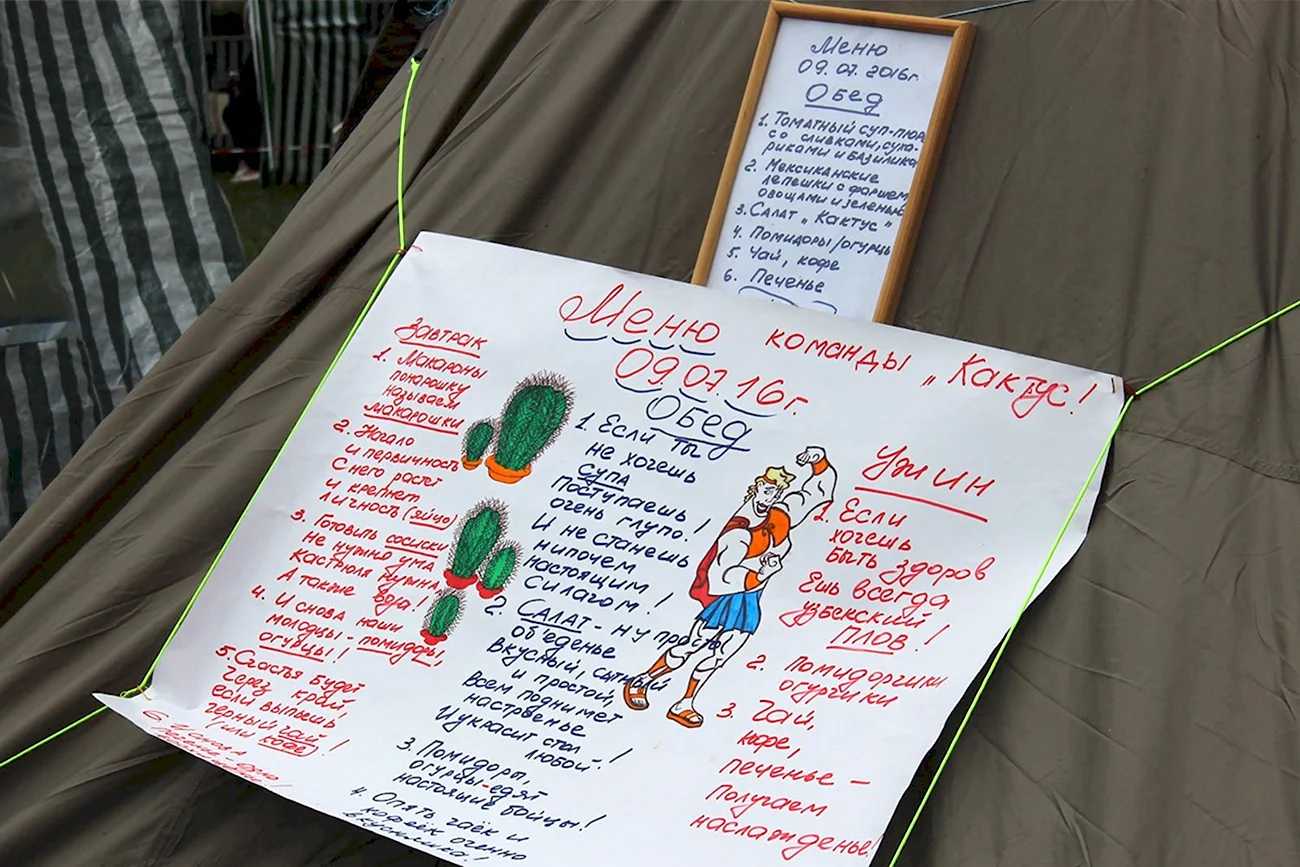 Меню
09.07.2016г.
Обед
1. Томатный суп-пюре
со сливками, суха-
риками и базилико
2. Мексиканские
лепешки с фаршем,
овощами и зеленью
3. Салат „Кактус"
4. Помидоры/огурцы
5. Чай, кофе
6. Печенье
Меню команды „Кактус!
09.07.16г.
Завтрак
1. Макароны
понарошку
называем
макарошки
2. Начало
и первичность
С него растёт
и крепнет
личность (яйцо)
3. Готовить сосиски
Не нужно ума
Кастрюля нужна,
А также вода!
4. И снова наши
молодцы - помидоры,
огурцы!
5. Счастья будет
Через край,
если выпьешь
чёрный чай!
(или кофе)
6. И снова
Обед
1. Если ты
не хочешь
Супа
Поступаешь
очень глупо!
И не станешь
нипочем
настоящим
силачом!
2. Салат - ну просто
объеденье
Вкусный, сытный
и простой,
Всем поднимет
настроенье
И украсит стол
любой!
3. Помидоры,
огурцы-едят
настоящие бойцы!
4. Опять чаёк и
кофеёк
Ужин
1. Если
хочешь
быть здоров
Ешь всегда
узбекский
плов!
2. Помидорчики
огурчики
3. Чай,
кофе,
печенье -
Получаем
наслажденье!